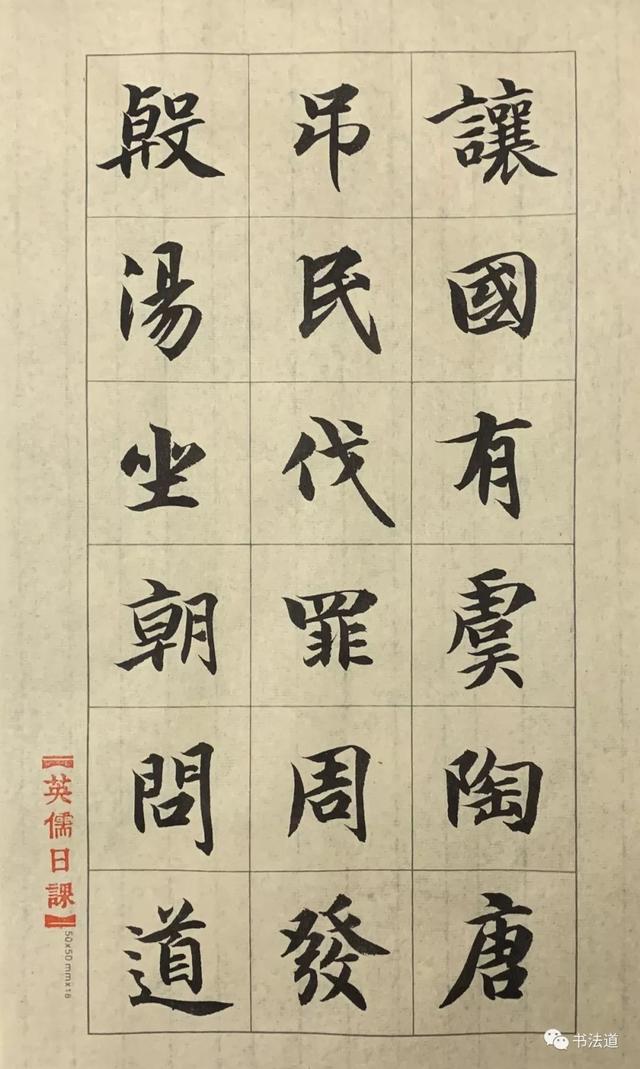 讓國有虞陶唐
吊民伐罪周發
殷湯坐朝問道
【英儒日課】
50x50mmx18
书法道